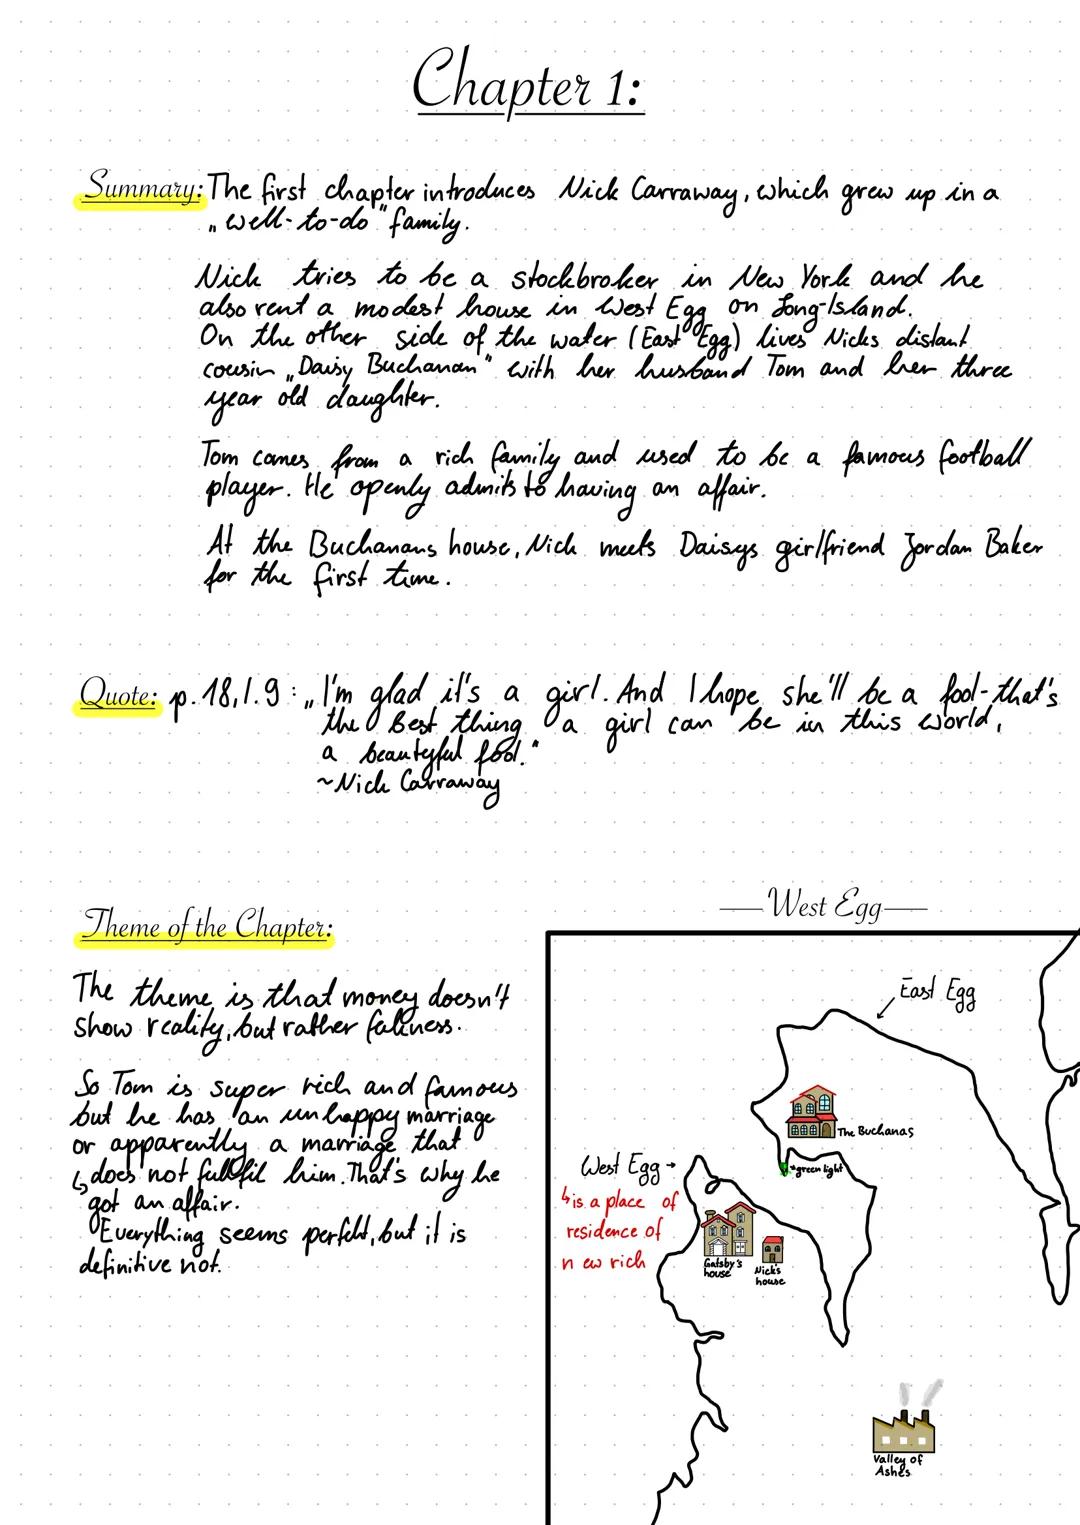 Chapter 1:
Summary: The first chapter introduces Nick Carraway, which grew up in a
„well-to-do" family.
Nick tries to be a stockbroker in New York and he
also rent a modest house in West Egg on Long-Island.
On the other side of the water (East Egg) lives Nicks distant
cousin „Daisy Buchanan" with her husband Tom and her three
year old daughter.
Tom comes from a rich family and used to be a famous football
player. He openly admits to having an affair.
At the Buchanans house, Nick meets Daisys girlfriend Jordan Baker
for the first time.
Quote: p. 18, l. 9: „I'm glad it's a girl. And I hope she'll be a fool-that's
the Best thing a girl can be in this world,
a beautyful fool."
~Nick Carraway
Theme of the Chapter:
The theme is that money doesn't
show reality, but rather
So Tom is super rich and famous
but he has an unhappy marriage
or apparently a marriage that
↳ does not fullfil him. That's why he
got an affair.
Everything seems but it is
definitive not.
West Egg
East Egg
The Buchanas
green light
West Egg →
↳ is a place of
residence of
new rich
Gatsby's
house
Nick's
house
Valley of
Ashes